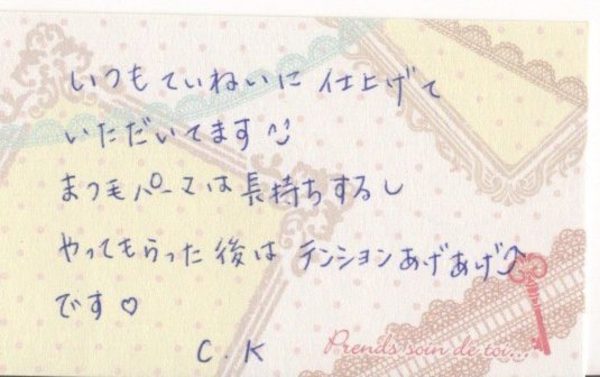 いつもていねいに仕上げて
いただいてます^^
まつ毛パーマは長持ちするし
やってもらった後はテンションあげあげ⤴
です♡
C.K
Prends soin de toi...